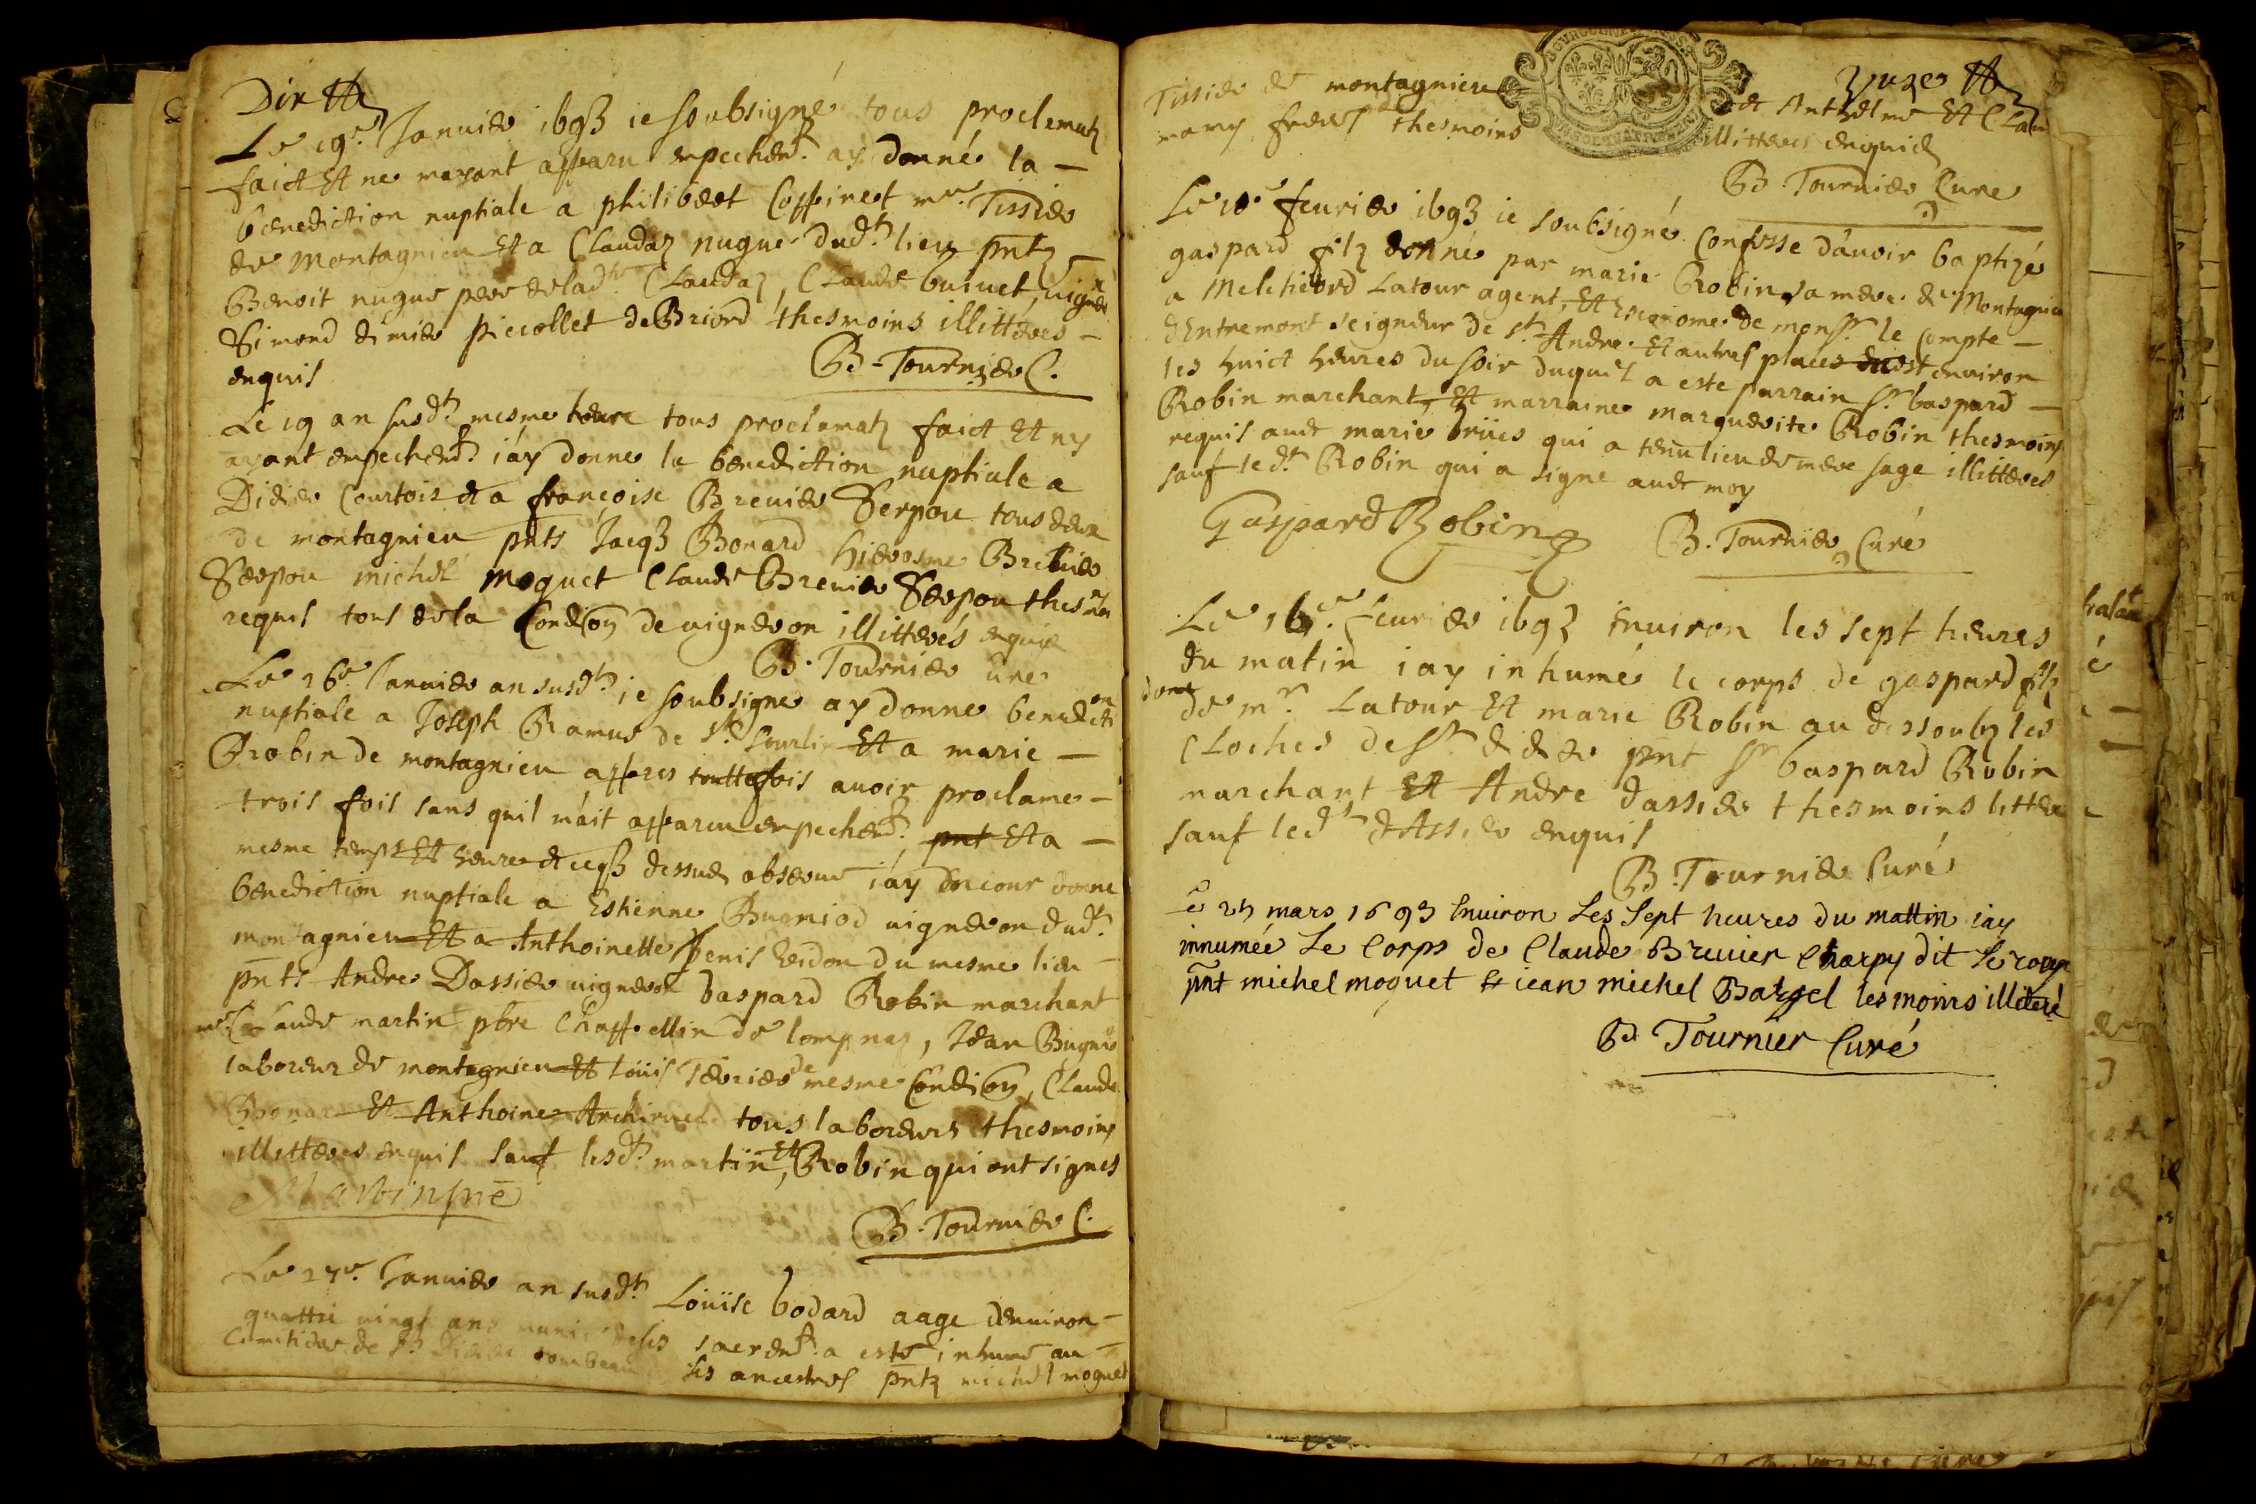 Dix
Le 19e Januier 1693 ie soubsigné tous proclematz
faict Et ne mayant apparu empechemt ay donné la
benediction nuptiale a philibert Coffinet mre Tissier
de Montagnieu Et a Claudaz nugue dudt lieu pntz
Benoit nugue pere de lad Claudaz, Claude buiuet, uigner
Simond dimier piecollet de Briord thesmoins illitteres
enquis B. Tournier C.
Le 19 an susdt mesme heure tous proclamatz faict Et ny
ayant empechemt iáy donne la benediction nuptiale a
Didier Courtois et a françoise Breuier Serpou tous deux
de montagnieu pnts Jacq3 Bonard hierosme Breuier
Serpou michel moquet Claude Breuier Serpou thesmoi
requis tous de la Condion de uigneron illitterés enquis
B. Tournier Cure
Le 26e Januier an susdt ie soubsigne ay donne benedicti
nuptiale a Joseph Ramus de st Sourlin Et a marie
Robin de montagnieu appres touttefois auoir proclame
trois fois sans quil máit appareu empechemt pnt Et a
mesme temps Et heure et ceq3 dessus obserue iáy encour donne
benediction nuptiale a Estienne Bugniod uigneron dudt
montagnieu Et a Anthoinette du mesme lieu
pnts Andre Dassier uigneron Gaspard Robin marchant
mre Claude martin pbre Chappellin de lompnaz, Jean Bugnio
laboreur de montagnieu Et loüis Terrier de mesme Condion, Claude
Bonar Et Anthoine tous laboreurs thesmoins
illitteres enquis sauf lesdt martin Et Robin qui ont signes
Martin pre
B. Tournier C.
Le 27e Januier an susdt Loüise bodard aage denuiron
quattre uingt ans munie de ses sacremt a esté inhumé au
Cimetiere de st Didier tombeau ses ancestres pntz michel moquet
unze
Tissier de montagnieu et Anthelme Et Clau
mary freres thesmoins illitteres enquis
B. Tournier Cure
Le 10e feurier 1693 ie soubsigné Confesse dáuoir baptizé
gaspard filz donné par marie Robin sa mere de Montagnieu
a Melchiord Latour agent, Et Economes de monsr le Compte
dEntremont seigneur de st Andre Et autres places enuiron
les huict heures du soir duquel a este parrain sr Gaspard
Robin marchant, Et marraine marguerite Robin thesmoins
requis auec marie brües qui a tenu lieu de mere sage illitteres
sauf ledt Robin qui a signe auec moy
Gaspard Robin B. Tournier Curé
Le 16e feurier 1693 Enuiron les sept heures
du matin iay inhumé le corps de gaspard filz
donné de mr Latour Et marie Robin au dessoubz les
Cloches de st didier pnt sr Gaspard Robin
marchant Et Andre dassier thesmoins litteres
sauf ledt dAssier enquis
B. Tournier Curé
Le 25 mars 1693 Enuiron Les Sept heures du mattin iay
innumée Le Corps de Claude Breuier Charpy dit
pnt michel moquet Et iean michel tesmoins illiteré
Bd Tournier Curé